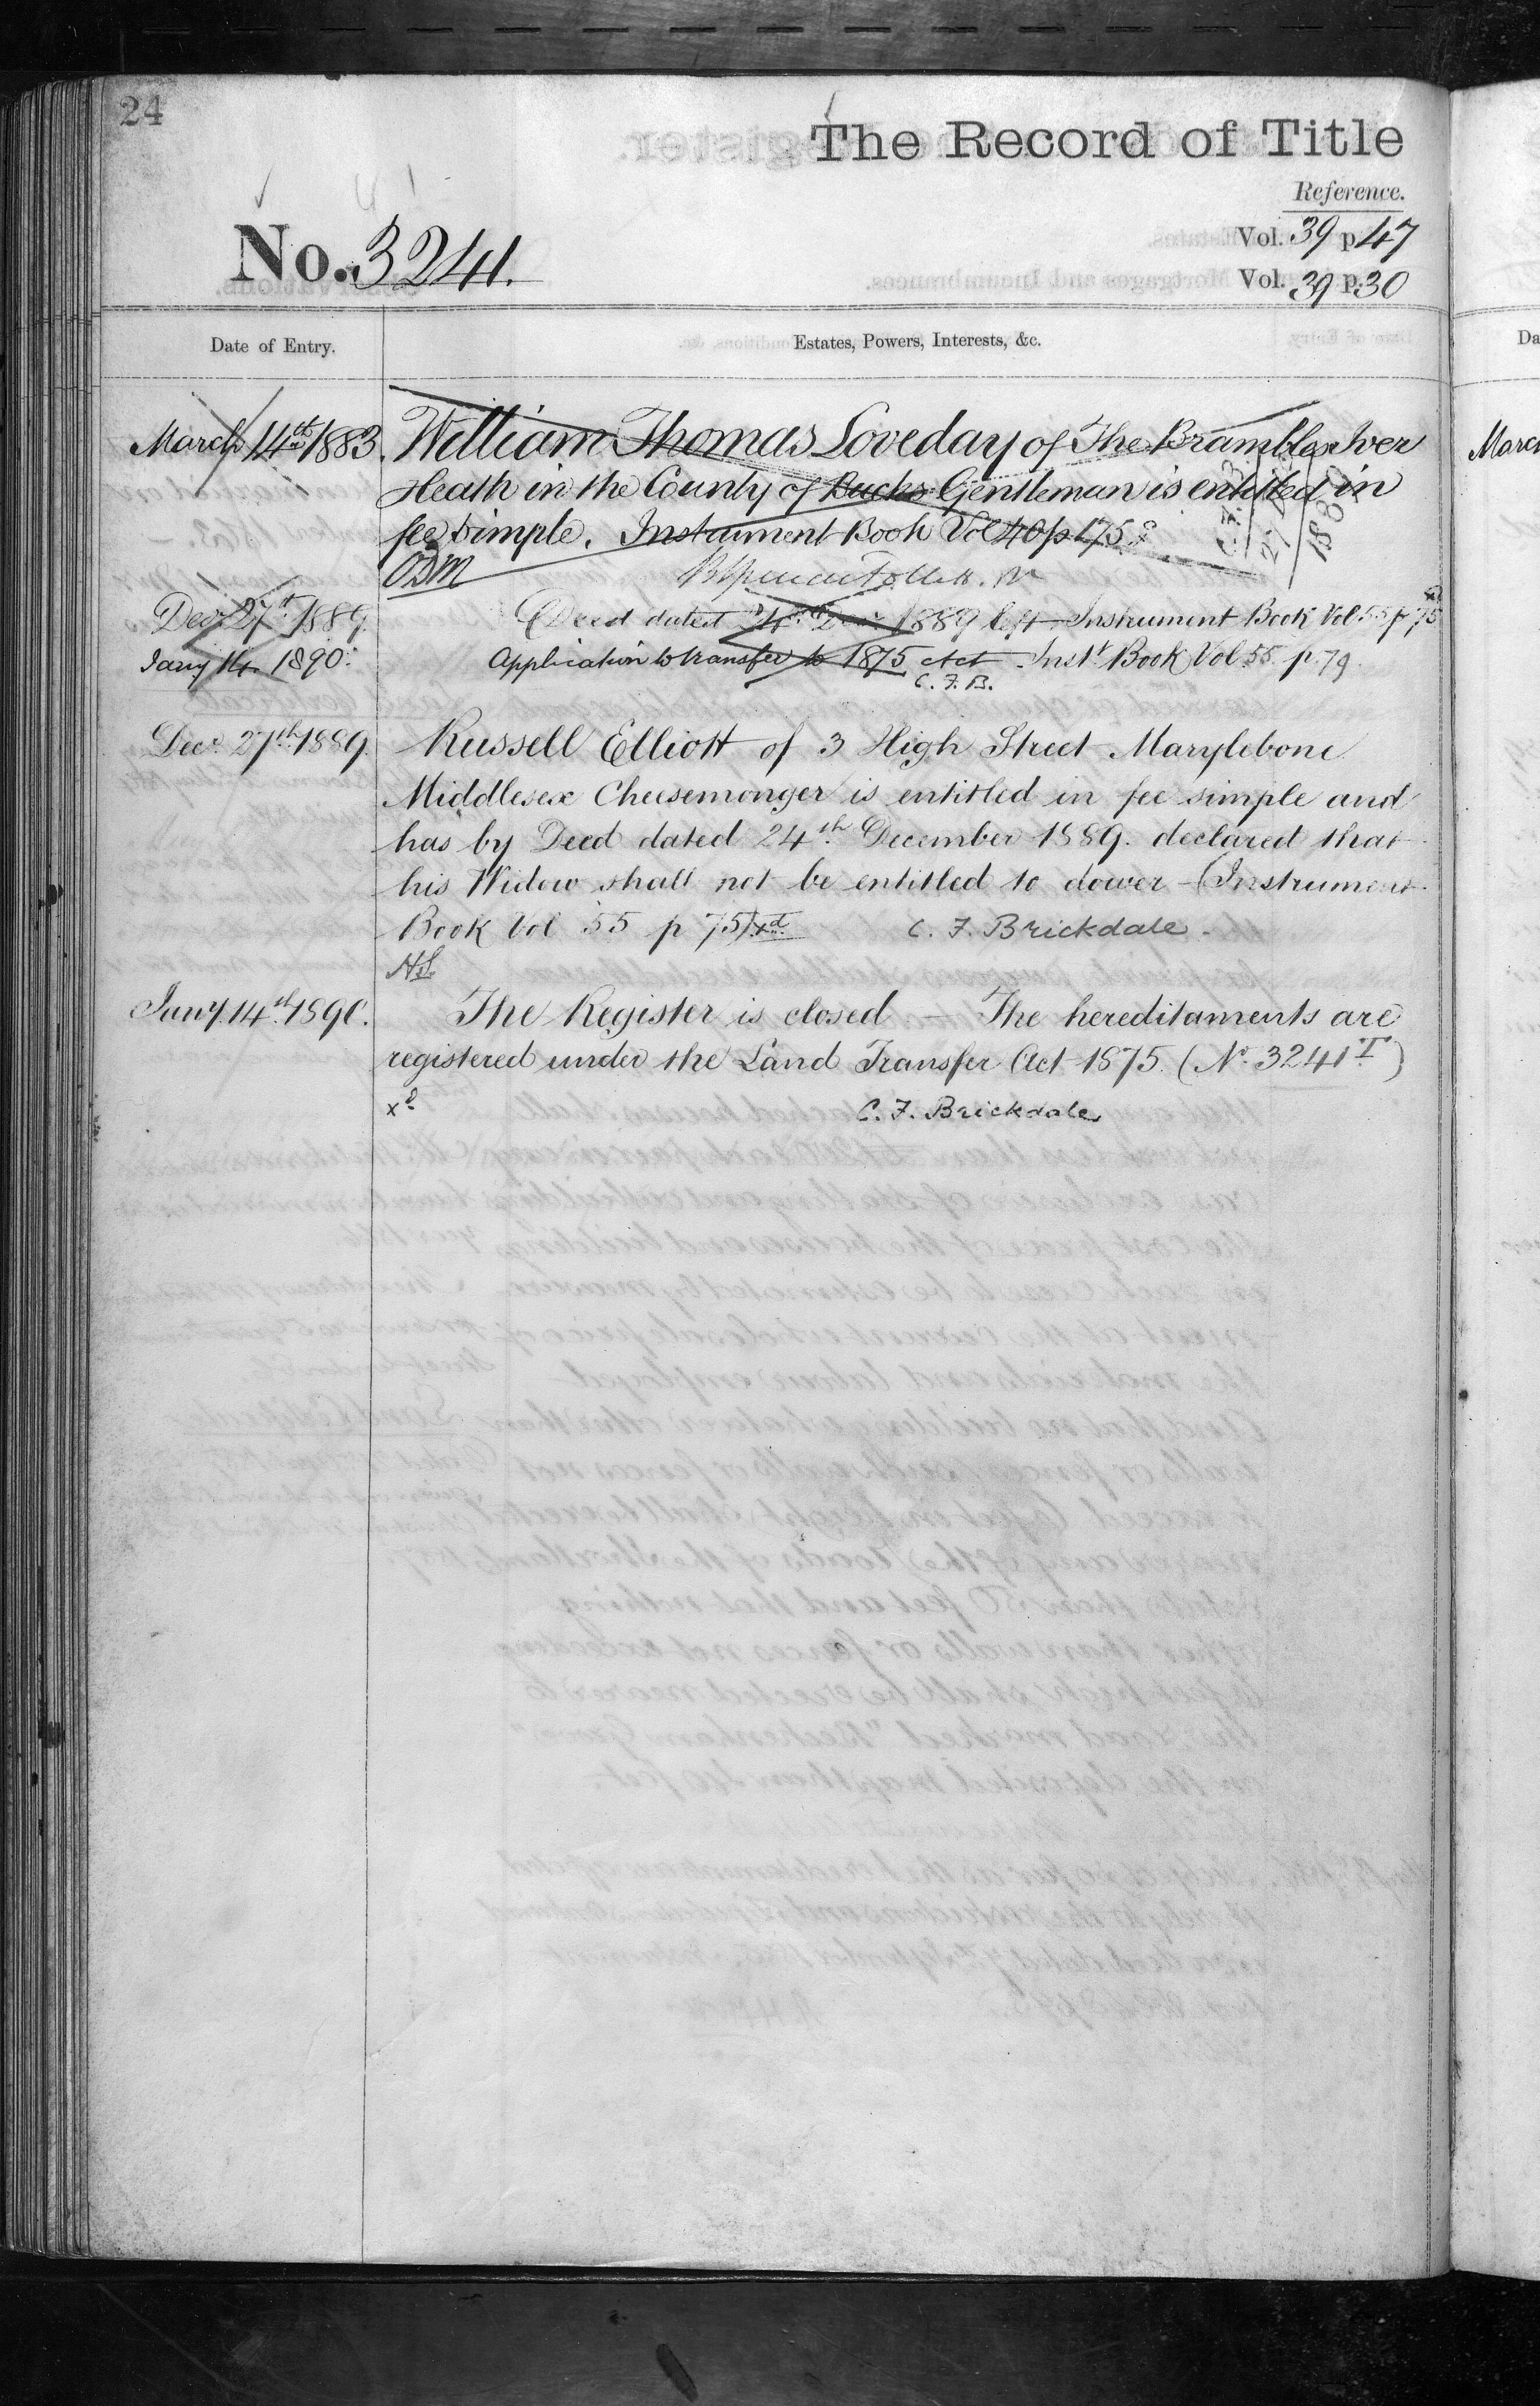 24
The Record of Title
Reference.
No. 3241.
Vol. 39 p. 47
Vol. 39 p. 30
Date of Entry.
Estates, Powers, Interests, &c.
March 14th 1883. William Thomas Loveday of The Brambles Iver
Heath in the County of Bucks Gentleman is entitled in
fee simple. Instrument Book Vol 40 p 175
C. F. B.
27
1889
Decr 27th 1889. Deed dated 24th Decr 1889 left Instrument Book Vol 55 p 75
Jany 14. 1890. Application to transfer to 1875 Act Instt Book Vol 55. p. 79.
C. F. B.
Decr 27th 1889. Russell Elliott of 3 High Street Marylebone
Middlesex Cheesemonger is entitled in fee simple and
has by Deed dated 24th December 1889. declared that
his Widow shall not be entitled to dower - (Instrument
Book Vol 55 p 75) xd C. F. Brickdale
Jany. 14th 1890. The Register is closed — The hereditaments are
registered under the Land Transfer Act 1875. (No. 3241 T)
xd C. F. Brickdale
Da
March